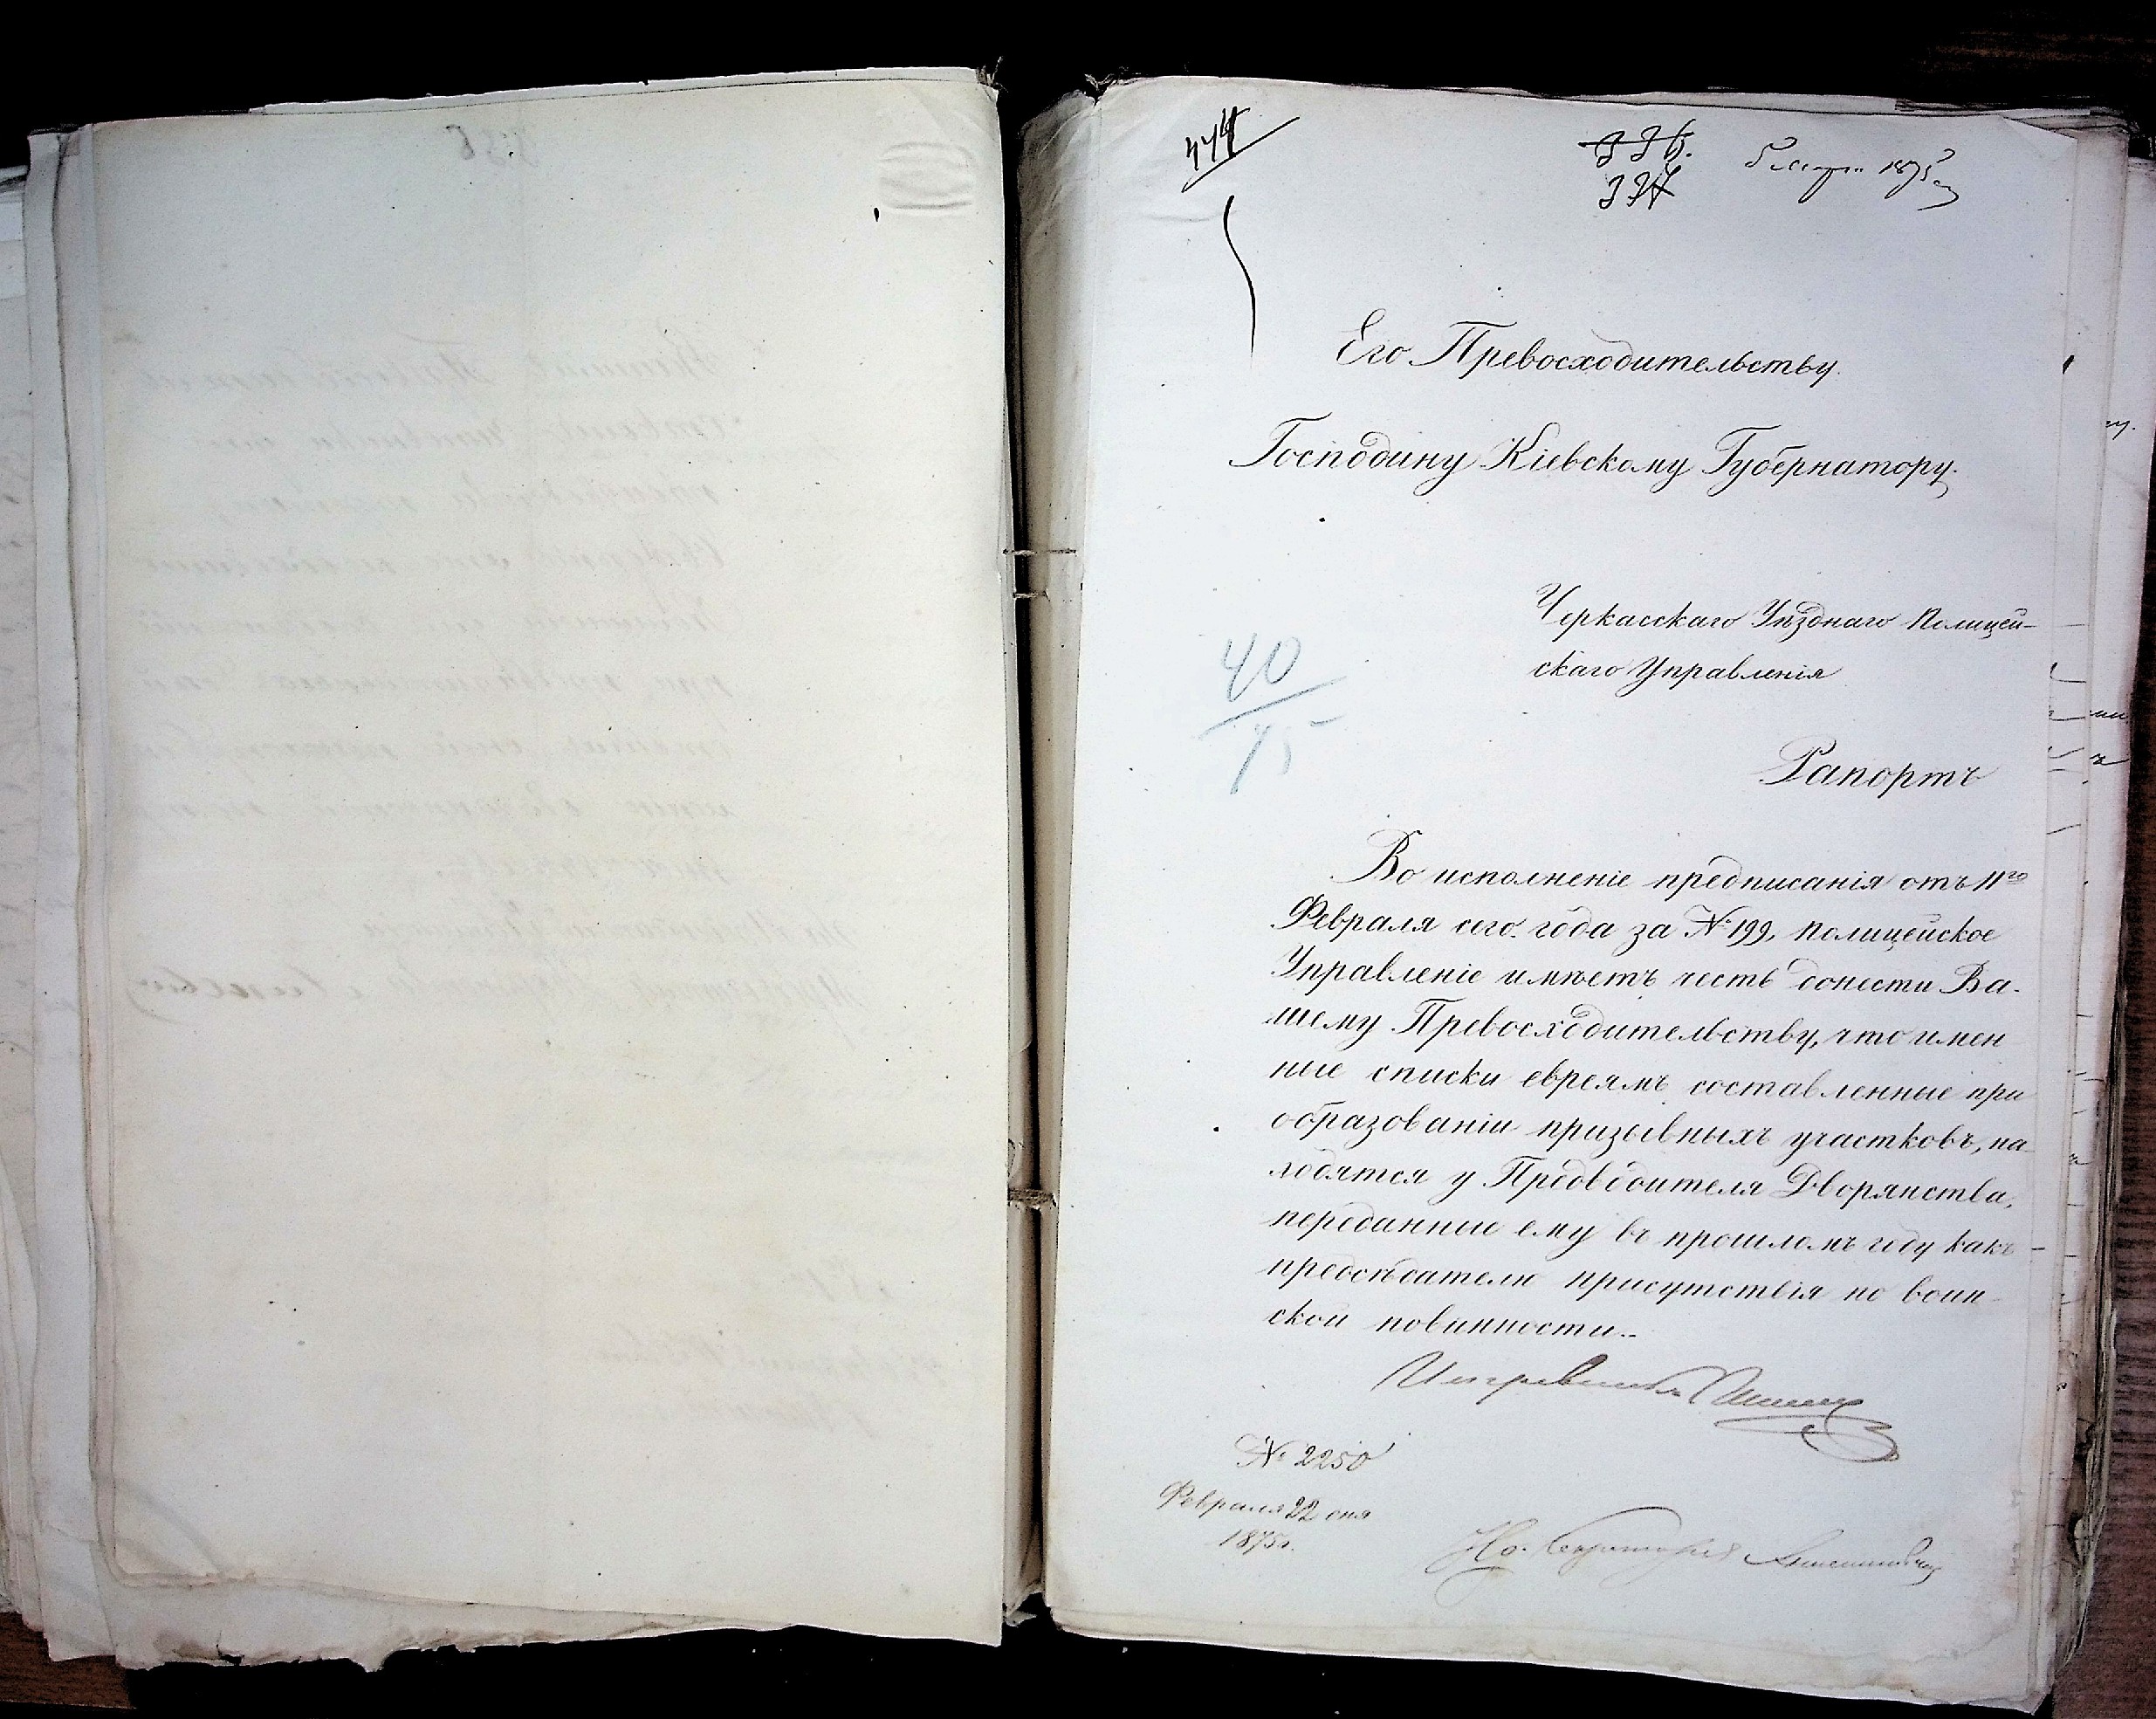 444
336.
337
5 Марта 1875 г
Его Превосходительству
Господину Кіевскому Губернатору.
Черкасскаго Уѣзднаго Полицей-
скаго Управленія
40
75
Рапортъ
Во исполненіе предписанія отъ 11го
Февраля сего года за № 199, полицейское
Управленіе имѣетъ честь донести Ва-
шему Превосходительству, что имен
ные списки евреямъ составленные при
образованіи призывныхъ участковъ, на
ходятся у Предводителя Дворянства,
переданные ему въ прошломъ году какъ
предсѣдателю присутствія по воин
ской повинности..
Исправникъ
№ 2250
Февраля 22 дня
1875 г.
Секретаря